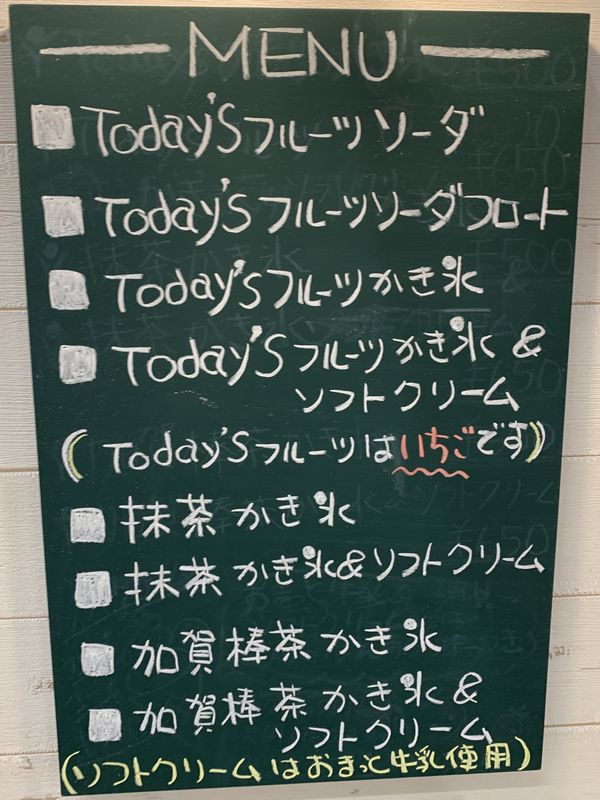 MENU
Today'sフルーツソーダ
Today'sフルーツソーダフロート
Today'sフルーツかき氷
Today'sフルーツかき氷&
ソフトクリーム
(Today'sフルーツはいちごです)
抹茶かき氷
抹茶かき氷&ソフトクリーム
加賀棒茶かき氷
加賀棒茶かき氷&
ソフトクリーム
(ソフトクリームはおまっと牛乳使用)